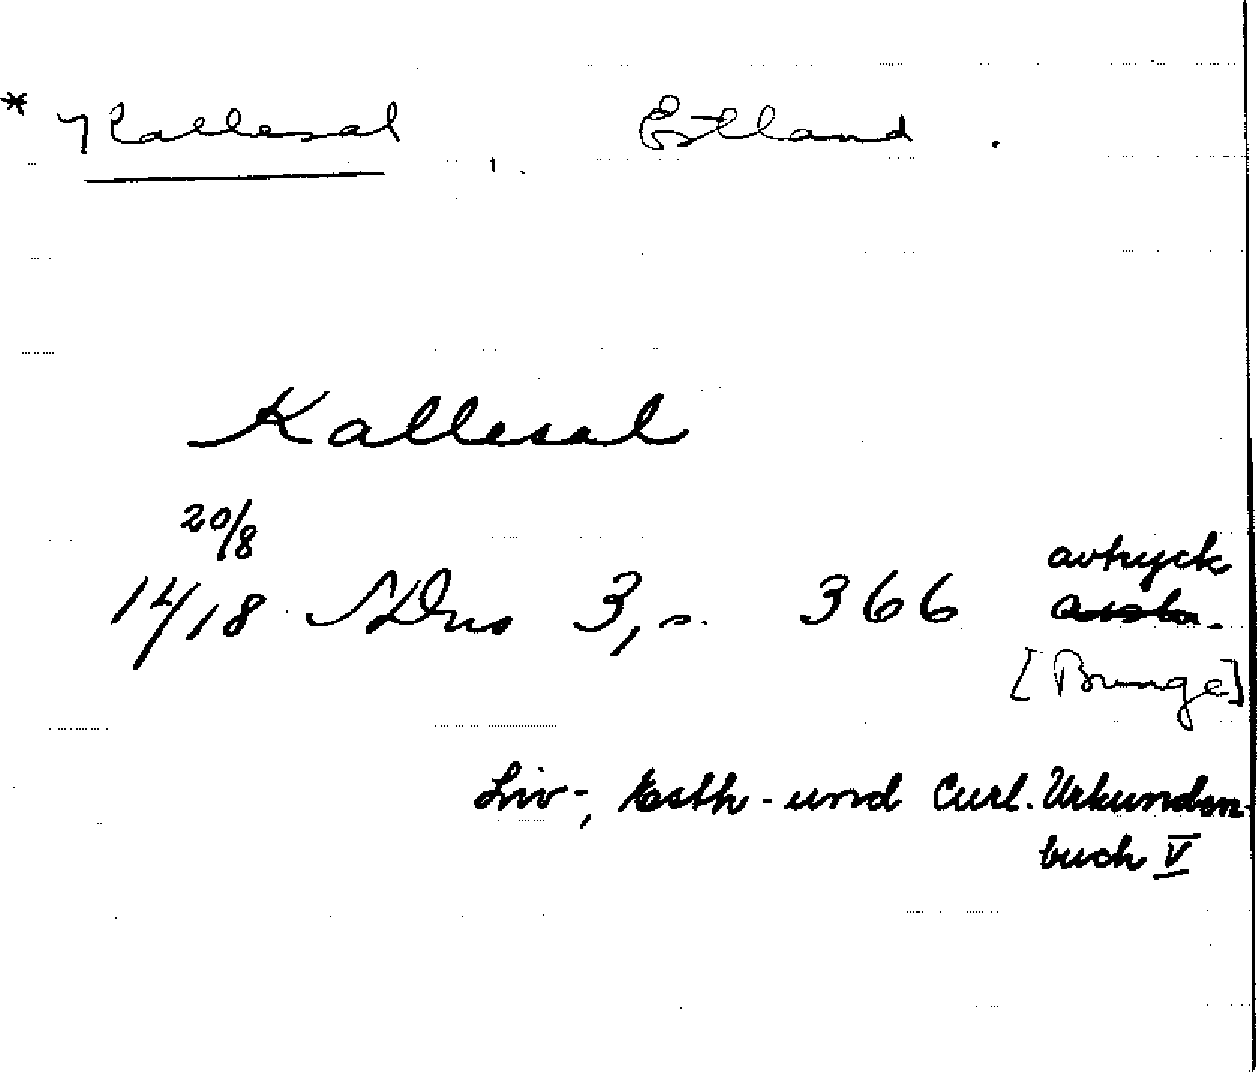 * Kallesal Estland.
Kallesal
20/8
14/18 SDns 3, s. 366 avtryck
[Bunge]
Liv-, Esth- und Curl. Urkunden-
buch V